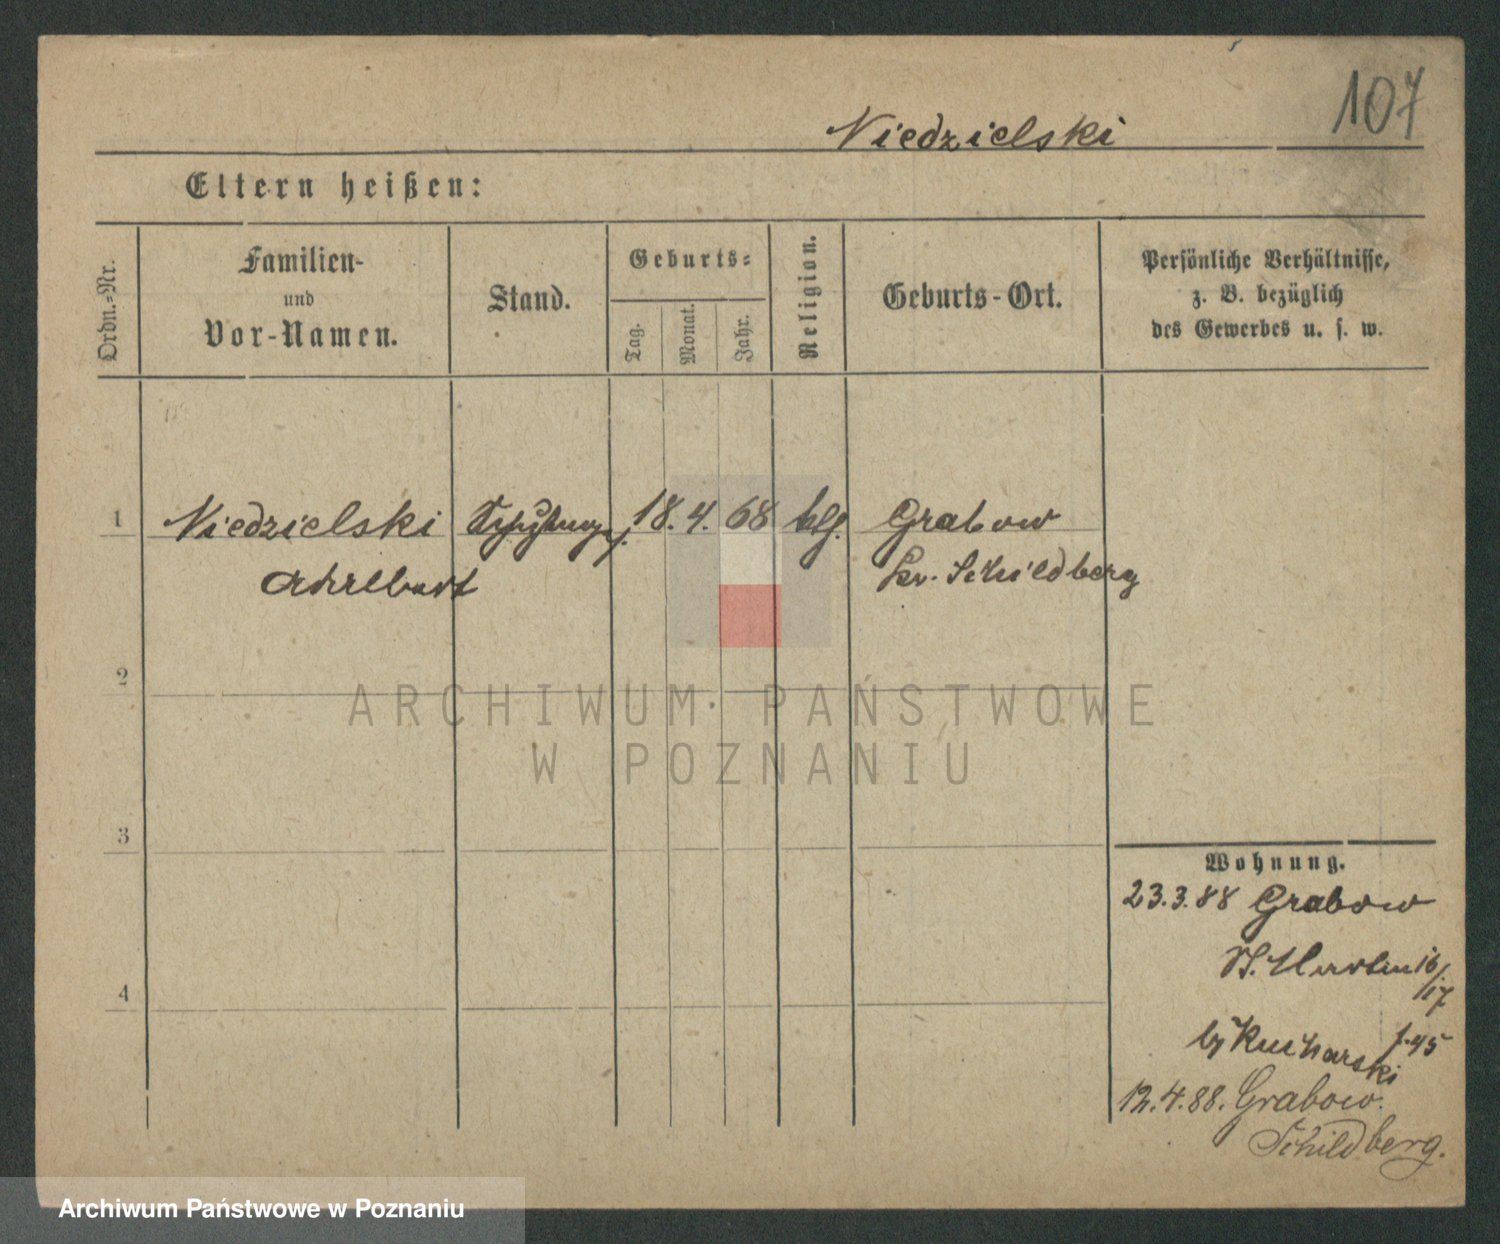 107
Niedzielski
Eltern heißen:
Ordn.-Nr.
Familien-
und
Vor-Namen.
Stand.
Geburts-
Tag.
Monat.
Jahr.
Religion.
Geburts-Ort.
Persönliche Verhältnisse,
z. B. bezüglich
des Gewerbes u. s. w.
1 Niedzielski 18. 4. 68 Grabow
Kr. Schildberg
2
3
4
Wohnung.
23.3.88 Grabow
St. Martin 16/
17
by Kucharski
12.4.88. Grabow.
Schildberg.
ARCHIWUM PAŃSTWOWE
W POZNANIU
Archiwum Państwowe w Poznaniu